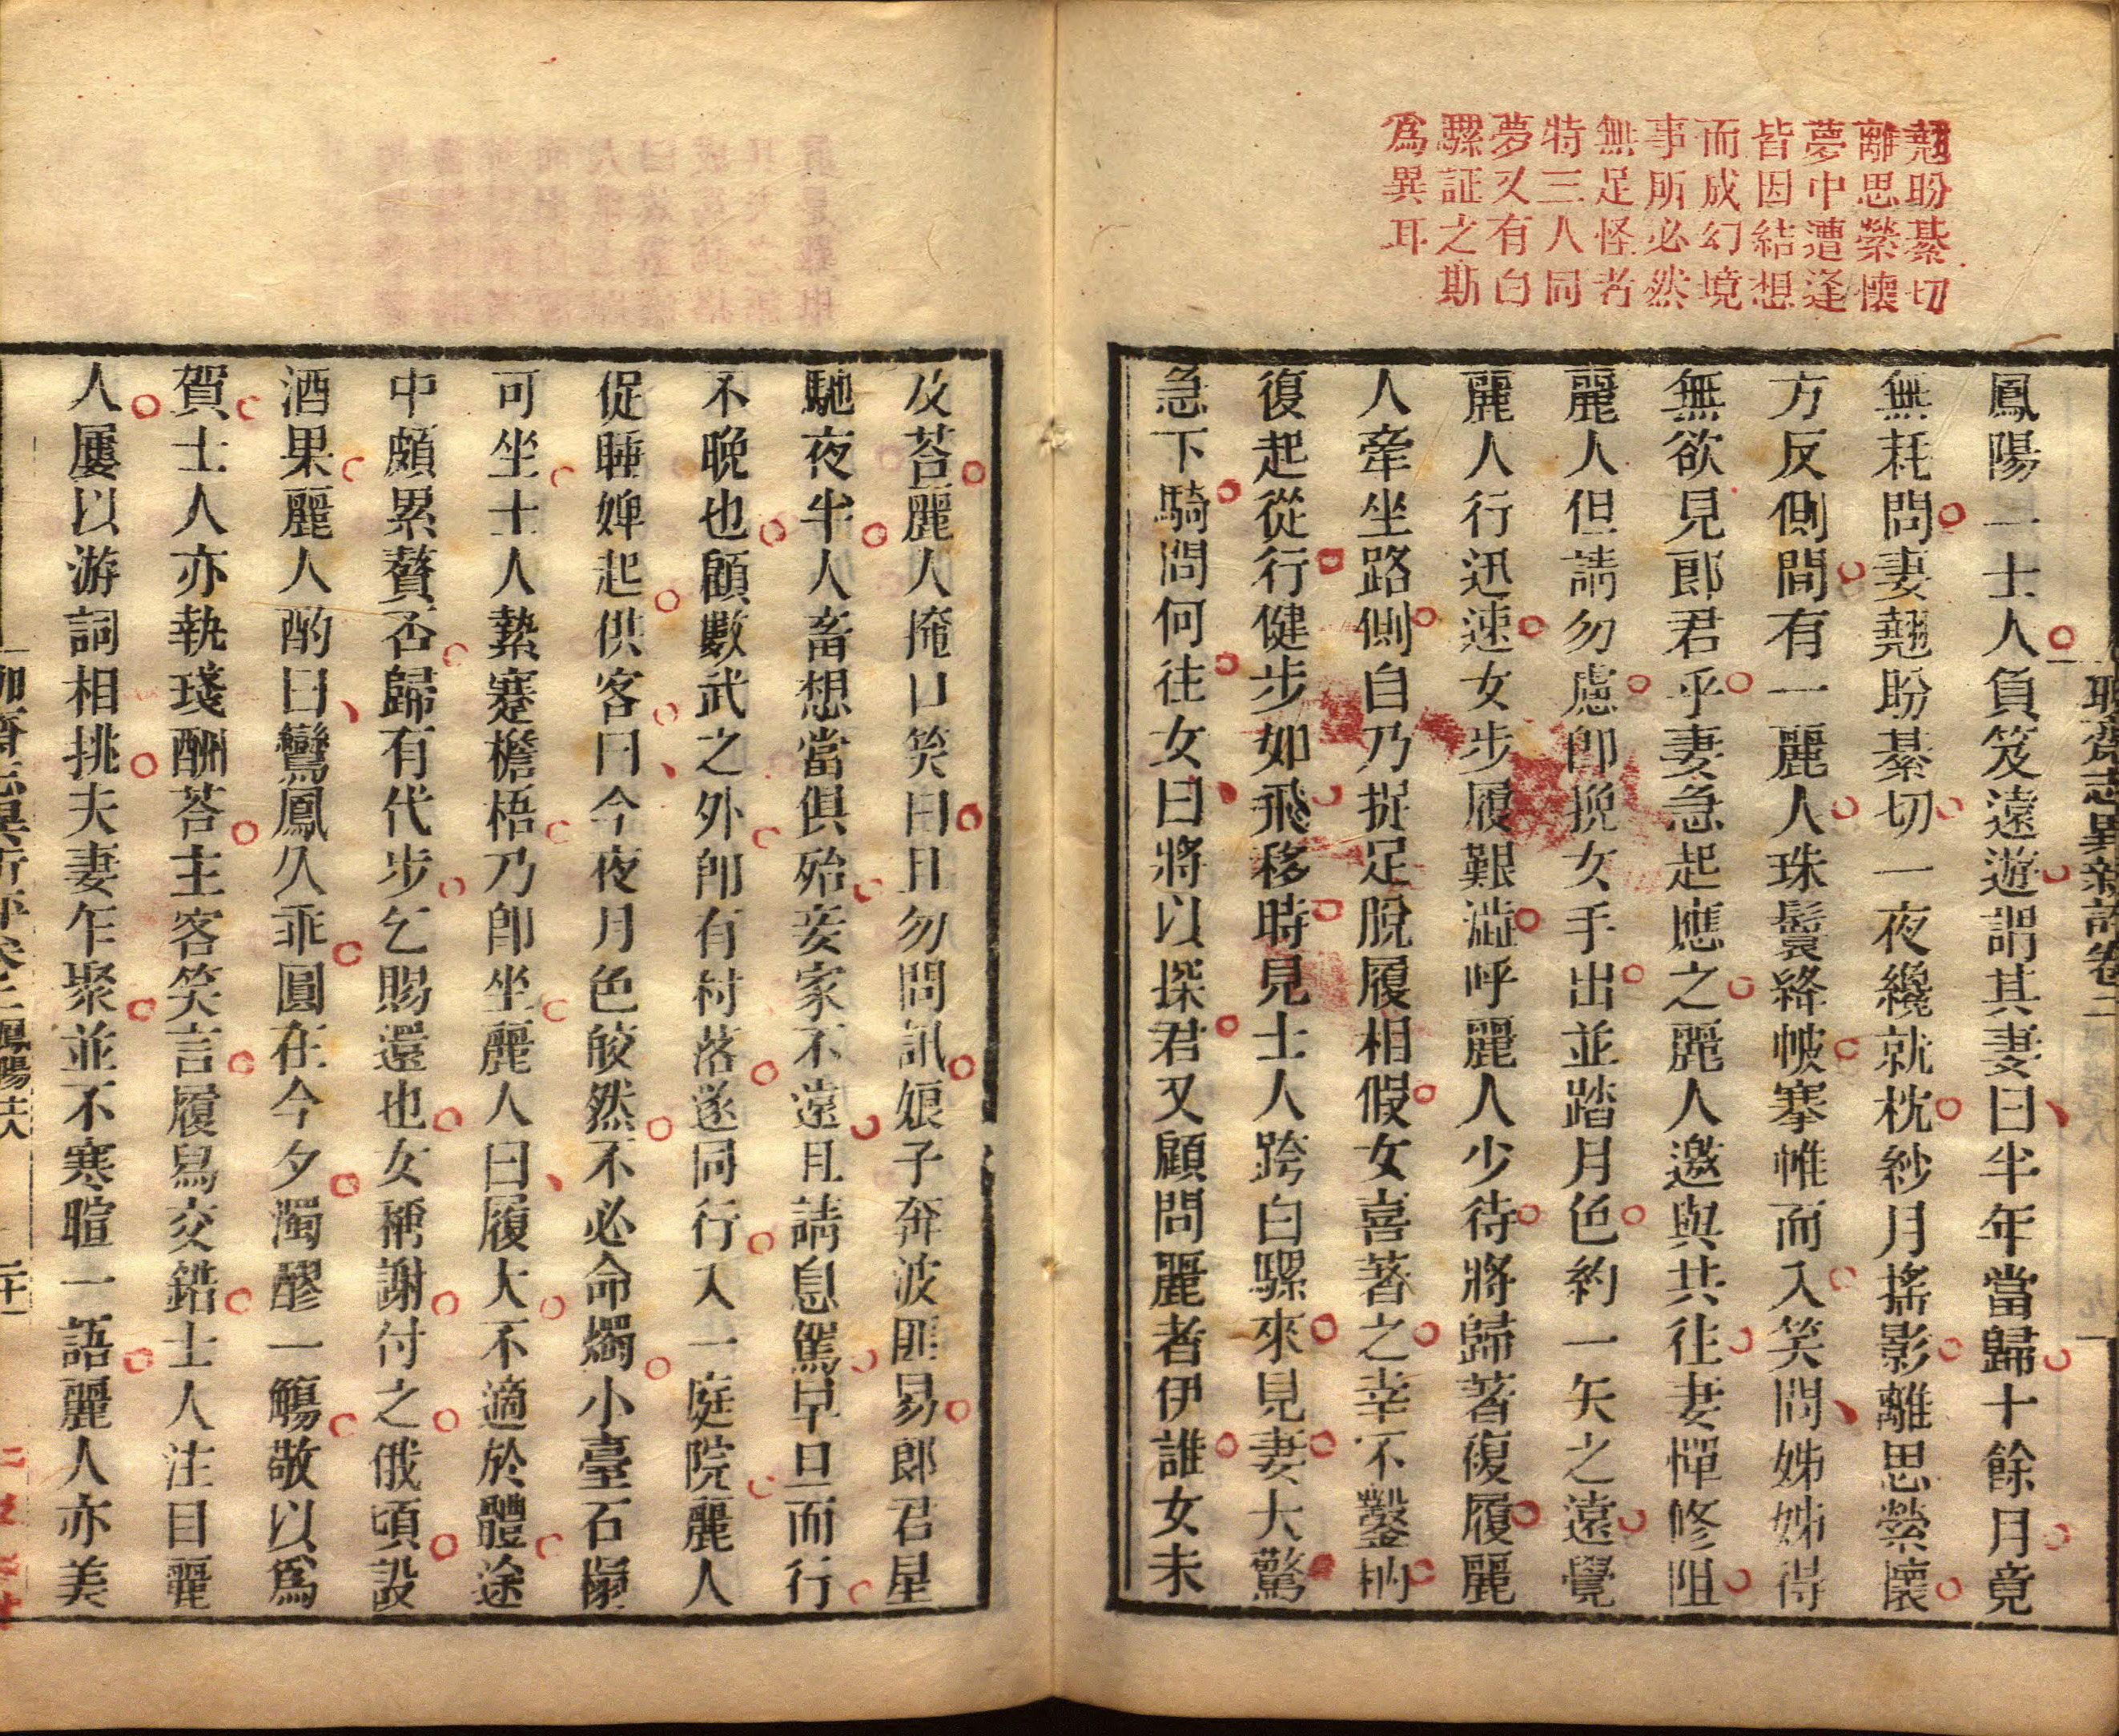 翹盼綦切
離思縈懷
夢中遭逢
皆因結想
而成幻境
事所必然
無足怪者
特三人同
夢又有白
騾証之斯
為異耳
聊齋志異新評卷二
鳳陽一士人負笈遠遊謂其妻曰半年當歸十餘月竟
無耗問妻翹盼綦切一夜纔就枕紗月搖影離思縈懷
方反側間有一麗人珠鬟絳帔搴帷而入笑問姊姊得
無欲見郎君乎妻急起應之麗人邀與共往妻憚修阻
麗人但請勿慮即挽女手出並踏月色約一矢之遠覺
麗人行迅速女步履艱澁呼麗人少待將歸著複履麗
人牽坐路側自乃捉足脫履相假女喜著之幸不鑿枘
復起從行健步如飛移時見士人跨白騾來見妻大驚
急下騎問何往女曰將以探君又顧問麗者伊誰女未
及荅麗人掩口笑曰且勿問訊娘子奔波匪易郎君星
馳夜半人畜想當俱殆妾家不遠且請息駕早旦而行
不晚也顧數武之外即有村落遂同行入一庭院麗人
促睡婢起供客曰今夜月色皎然不必命燭小臺石榻
可坐士人縶蹇檐梧乃即坐麗人曰履大不適於體途
中頗累贅否歸有代步乞賜還也女稱謝付之俄頃設
酒果麗人酌曰鸞鳳久乖圓在今夕濁醪一觴敬以為
賀士人亦執琖酬荅主客笑言履舄交錯士人注目麗
人屢以游詞相挑夫妻乍聚並不寒暄一語麗人亦美
聊齋志異新評卷二 鳳陽士人 二十一